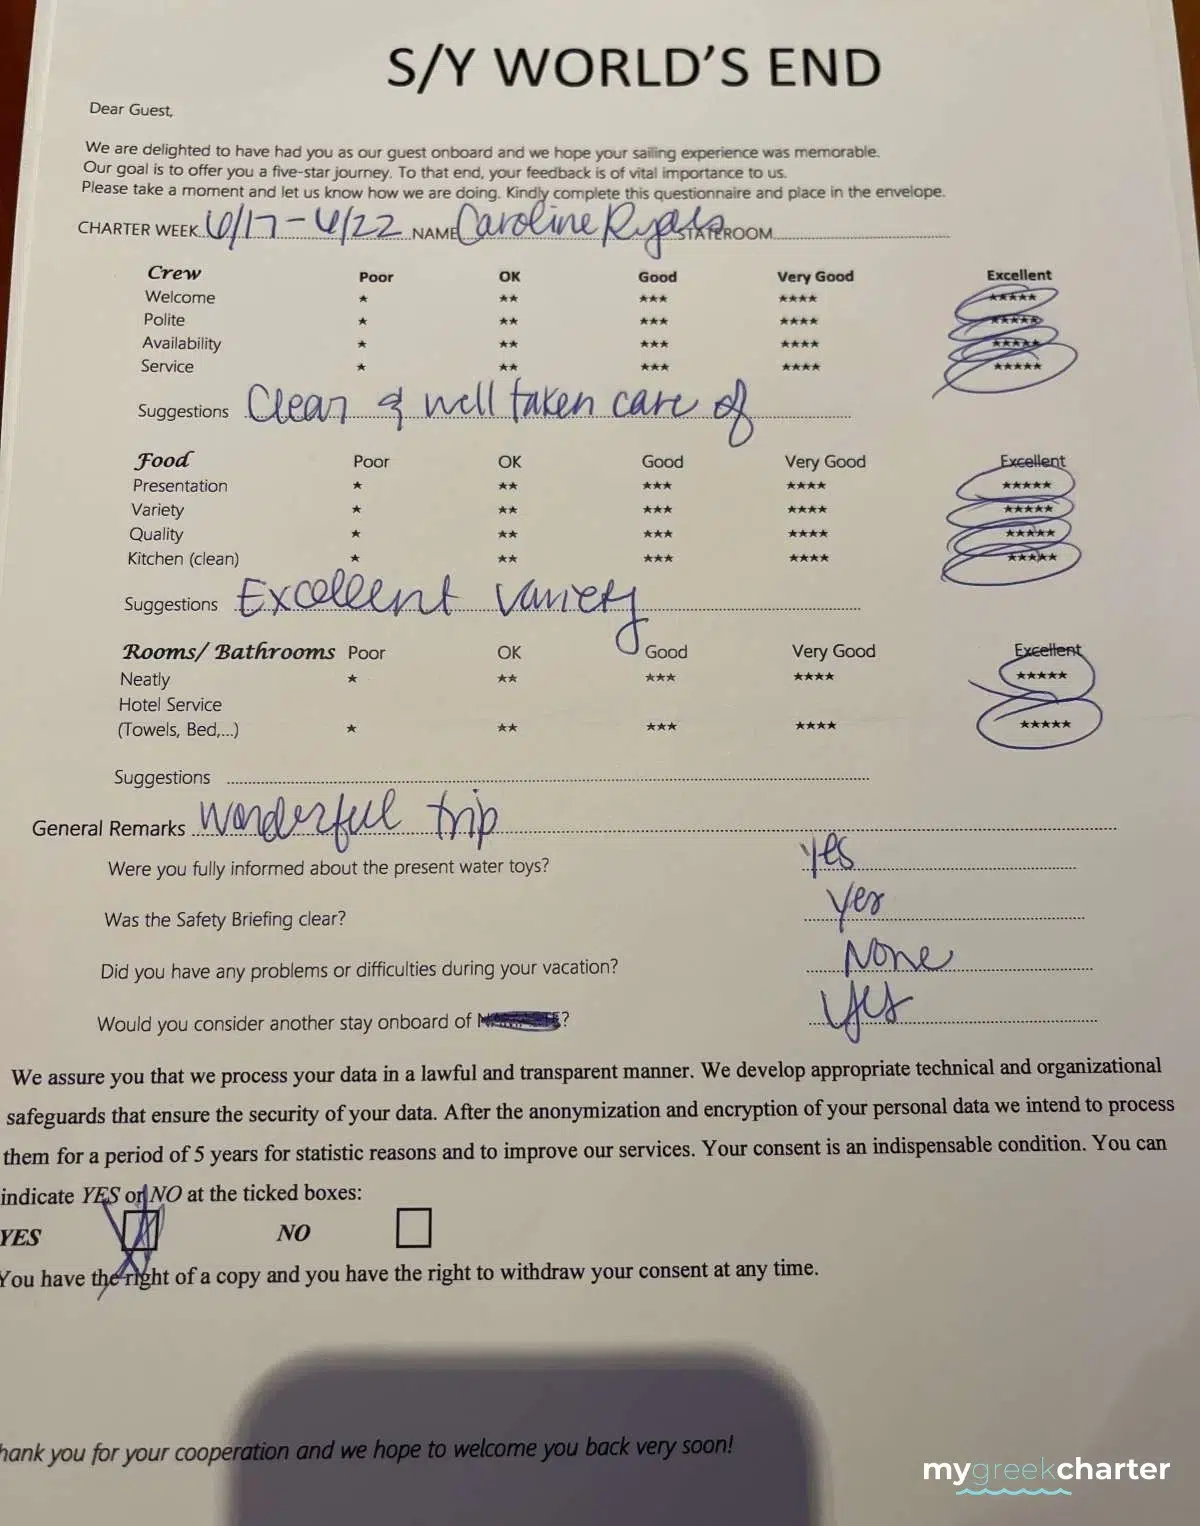 S/Y WORLD'S END
Dear Guest,
We are delighted to have had you as our guest onboard and we hope your sailing experience was memorable.
Our goal is to offer you a five-star journey. To that end, your feedback is of vital importance to us.
Please take a moment and let us know how we are doing. Kindly complete this questionnaire and place in the envelope.
CHARTER WEEK 6/17 - 6/22 NAME Caroline Ryals STATEROOM
Crew Poor OK Good Very Good Excellent
Welcome ★ ★★ ★★★ ★★★★ ★★★★★
Polite ★ ★★ ★★★ ★★★★ ★★★★★
Availability ★ ★★ ★★★ ★★★★ ★★★★★
Service ★ ★★ ★★★ ★★★★ ★★★★★
Suggestions Clean & well taken care of
Food Poor OK Good Very Good Excellent
Presentation ★ ★★ ★★★ ★★★★ ★★★★★
Variety ★ ★★ ★★★ ★★★★ ★★★★★
Quality ★ ★★ ★★★ ★★★★ ★★★★★
Kitchen (clean) ★ ★★ ★★★ ★★★★ ★★★★★
Suggestions Excellent variety
Rooms/ Bathrooms Poor OK Good Very Good Excellent
Neatly ★ ★★ ★★★ ★★★★ ★★★★★
Hotel Service
(Towels, Bed,...) ★ ★★ ★★★ ★★★★ ★★★★★
Suggestions
General Remarks Wonderful trip
Were you fully informed about the present water toys? Yes
Was the Safety Briefing clear? Yes
Did you have any problems or difficulties during your vacation? None
Would you consider another stay onboard of ? Yes
We assure you that we process your data in a lawful and transparent manner. We develop appropriate technical and organizational
safeguards that ensure the security of your data. After the anonymization and encryption of your personal data we intend to process
them for a period of 5 years for statistic reasons and to improve our services. Your consent is an indispensable condition. You can
indicate YES or NO at the ticked boxes:
YES NO
You have the right of a copy and you have the right to withdraw your consent at any time.
hank you for your cooperation and we hope to welcome you back very soon!
mygreekcharter